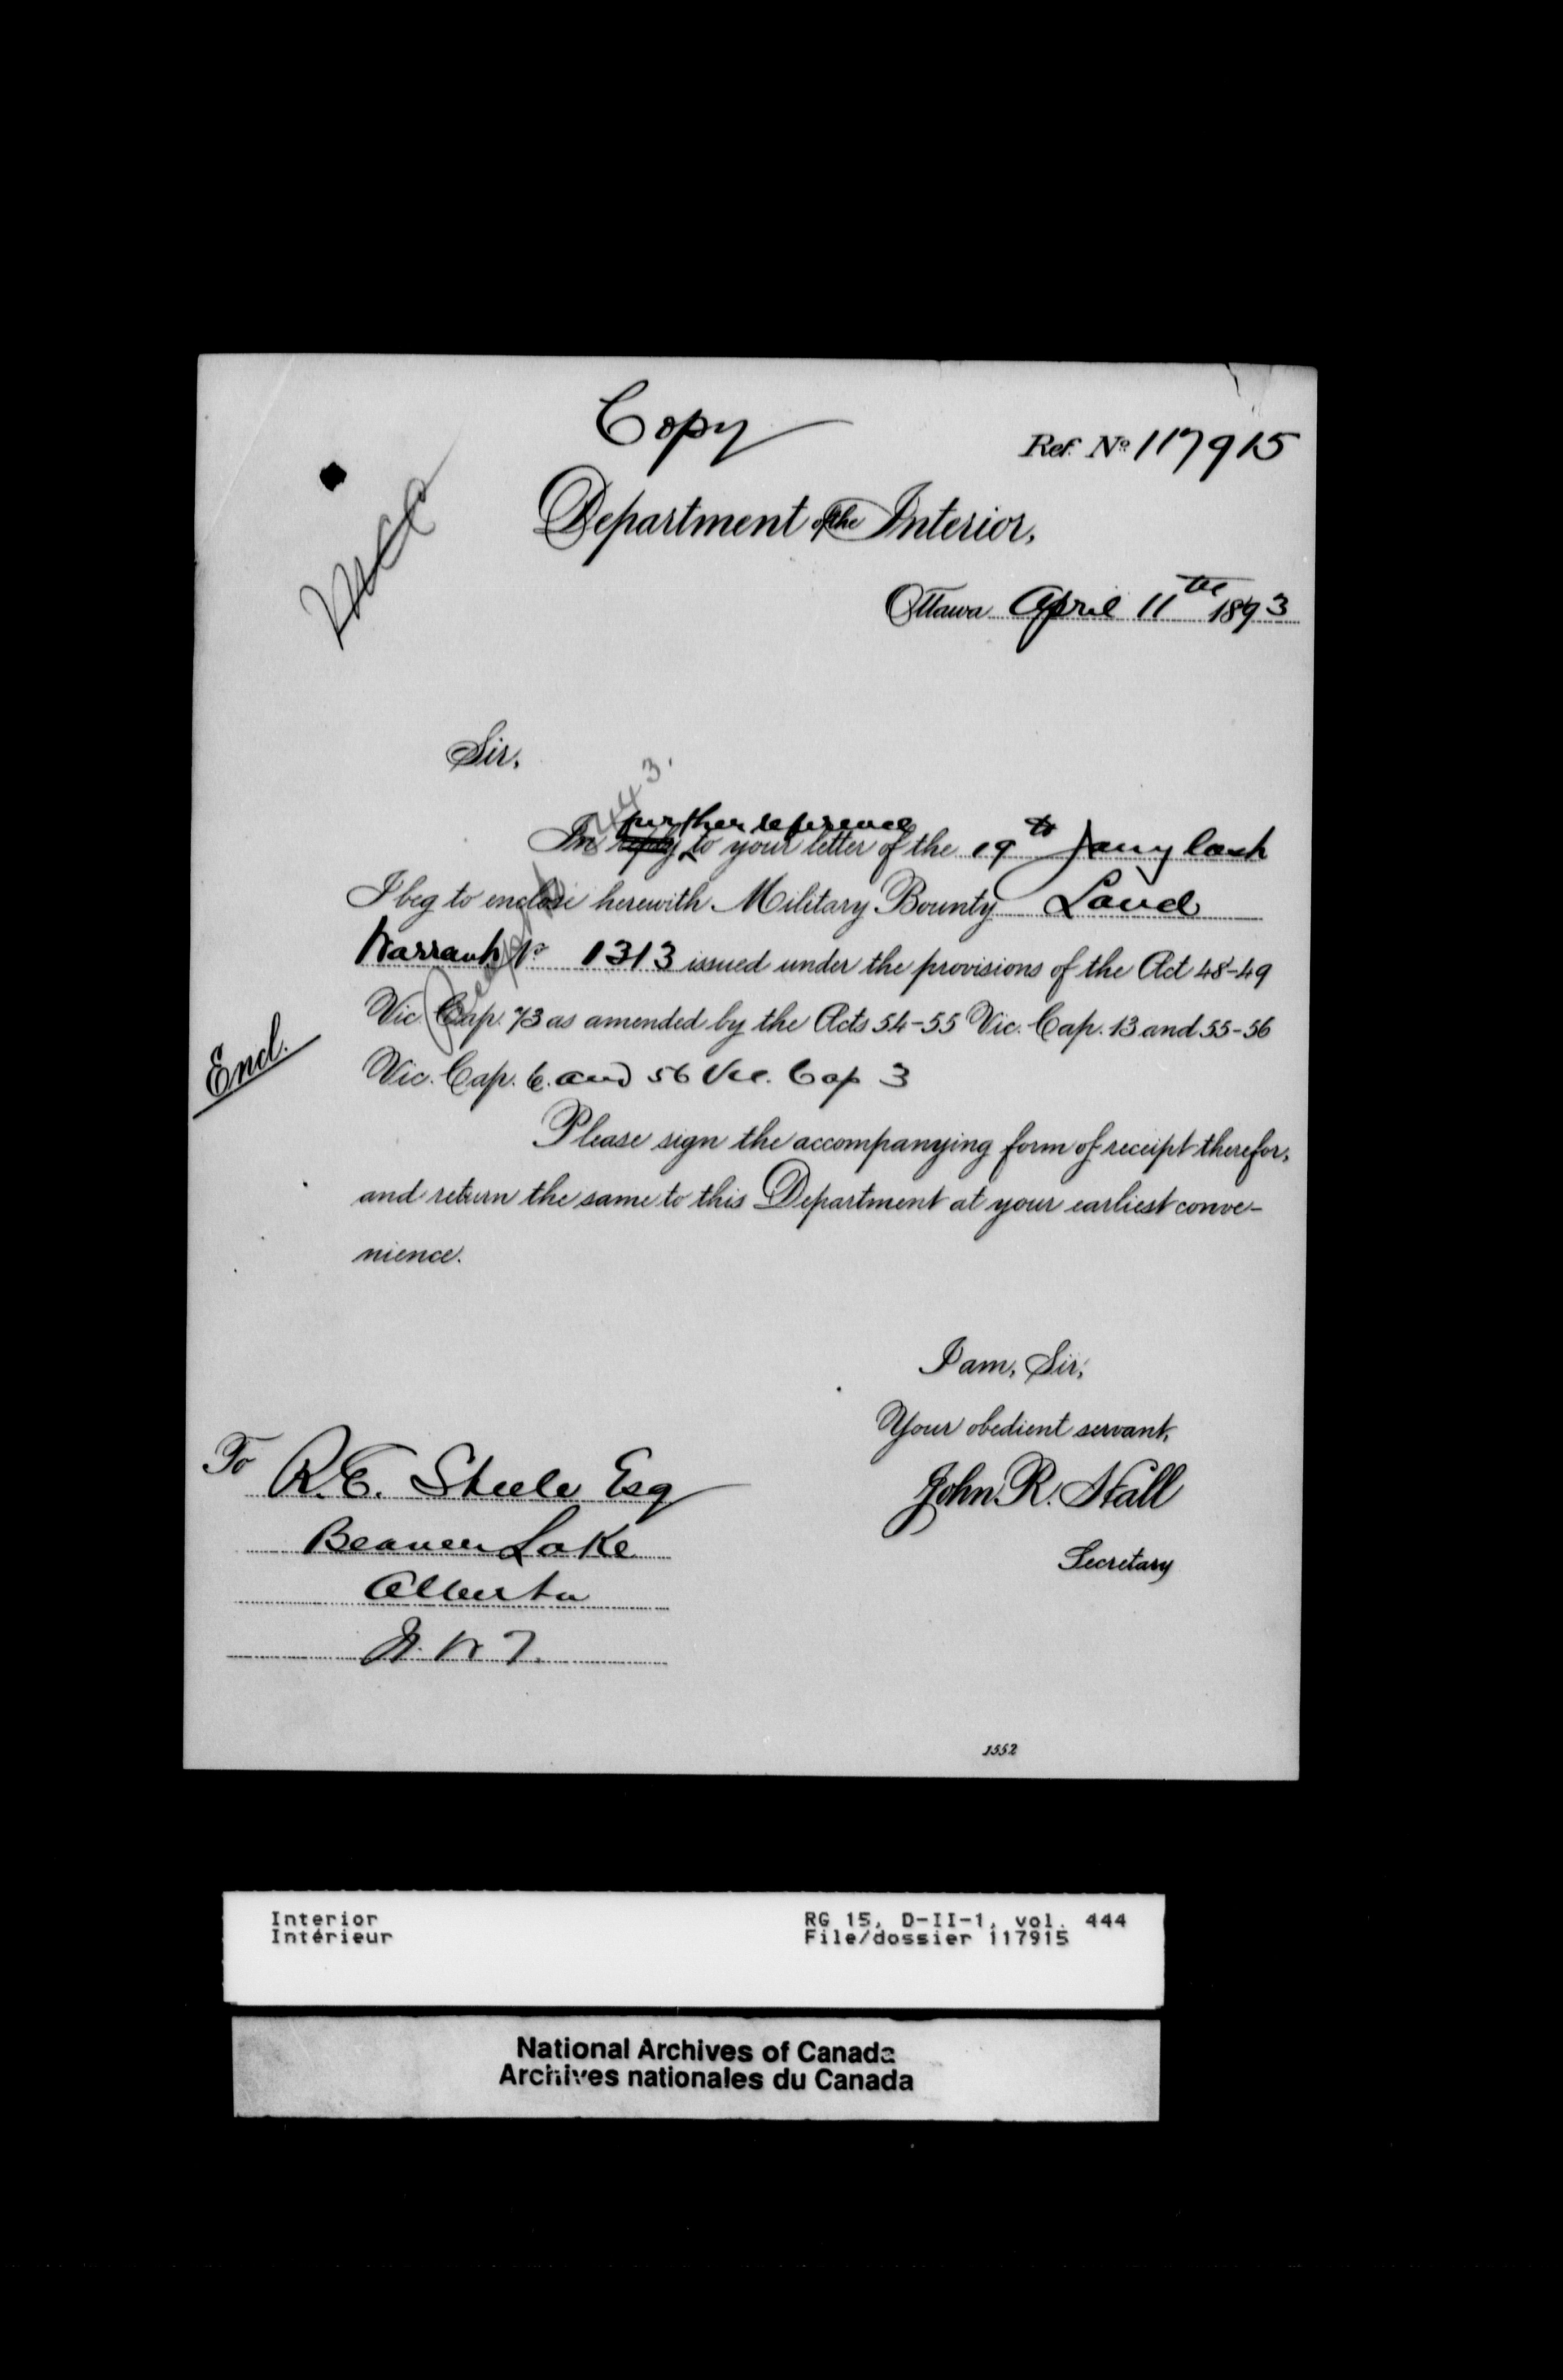 Copy
Ref. No 117915
Department of the Interior,
Ottawa April 11th 1893
Sir,
further reference
In reply to your letter of the 19th Jany last
I beg to enclose herewith Military Bounty Land
Warrant No 1313 issued under the provisions of the Act 48-49
Vic. Cap. 73 as amended by the Acts 54-55 Vic. Cap. 13 and 55-56
Encl.
Vic. Cap. 6. and 56 Vic. Cap 3
Please sign the accompanying form of receipt therefor,
and return the same to this Department at your earliest conve-
nience.
I am, Sir,
Your obedient servant,
John R. Hall
Secretary
To R.E. Steele Esq
Beaver Lake
Alberta
N.W.T.
1552
Interior
Intérieur
RG 15, D-II-1, vol. 444
File/dossier 117915
National Archives of Canada
Archives nationales du Canada